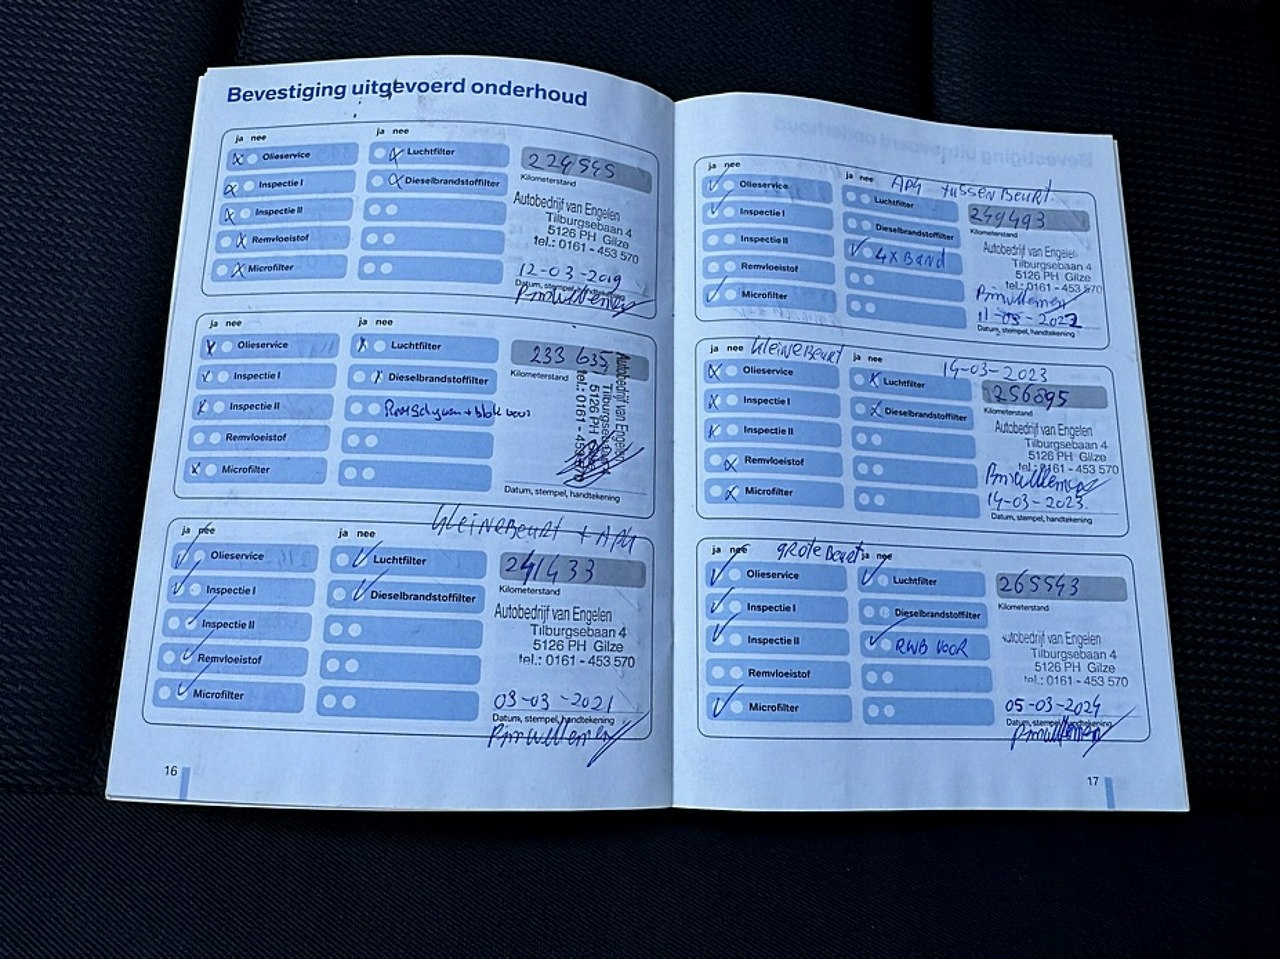 Bevestiging uitgevoerd onderhoud
ja nee
ja nee
Olieservice
Inspectie I
Inspectie II
Remvloeistof
Microfilter
Luchtfilter
Dieselbrandstoffilter
224545
Kilometerstand
Autobedrijf van Engelen
Tilburgsebaan 4
5126 PH Gilze
tel.: 0161 - 453 570
12-03-2019
Datum, stempel, handtekening
ja nee
ja nee
Olieservice
Inspectie I
Inspectie II
Remvloeistof
Microfilter
Luchtfilter
Dieselbrandstoffilter
233 635
Kilometerstand
Autobedrijf van Engelen
Tilburgsebaan
5126 PH
tel.: 0161 - 453 570
Datum, stempel, handtekening
kleine Beurt + APK
ja nee
ja nee
Olieservice
Inspectie I
Inspectie II
Remvloeistof
Microfilter
Luchtfilter
Dieselbrandstoffilter
241433
Kilometerstand
Autobedrijf van Engelen
Tilburgsebaan 4
5126 PH Gilze
tel.: 0161 - 453 570
03-03-2021
Datum, stempel, handtekening
16
ja nee
ja nee
APK tussen Beurt.
Olieservice
Inspectie I
Inspectie II
Remvloeistof
Microfilter
Luchtfilter
Dieselbrandstoffilter
4x Band
249493
Kilometerstand
Autobedrijf van Engelen
Tilburgsebaan 4
5126 PH Gilze
tel.: 0161 - 453 570
11-03-2022
Datum, stempel, handtekening
ja nee kleine Beurt
ja nee
14-03-2023
Olieservice
Inspectie I
Inspectie II
Remvloeistof
Microfilter
Luchtfilter
Dieselbrandstoffilter
256895
Kilometerstand
Autobedrijf van Engelen
Tilburgsebaan 4
5126 PH Gilze
tel.: 0161 - 453 570
14-03-2023.
Datum, stempel, handtekening
ja nee grote Beurt
ja nee
Olieservice
Inspectie I
Inspectie II
Remvloeistof
Microfilter
Luchtfilter
Dieselbrandstoffilter
RWB VOOR
265543
Kilometerstand
Autobedrijf van Engelen
Tilburgsebaan 4
5126 PH Gilze
tel.: 0161 - 453 570
05-03-2024
Datum, stempel, handtekening
17